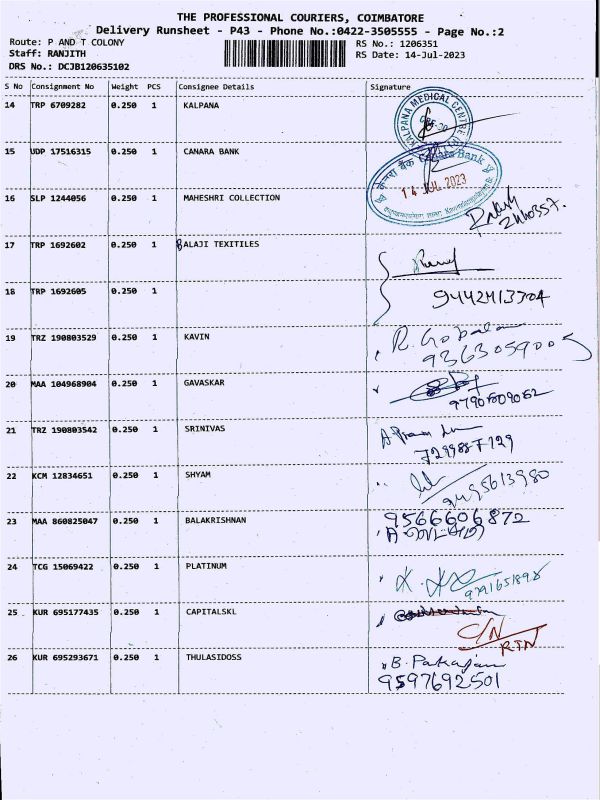 THE PROFESSIONAL COURIERS, COIMBATORE
Delivery Runsheet - P43 - Phone No.:0422-3505555 - Page No.:2
Route: P AND T COLONY RS No.: 1206351
Staff: RANJITH RS Date: 14-Jul-2023
DRS No.: DCJB120635102
S No Consignment No Weight PCS Consignee Details Signature
14 TRP 6709282 0.250 1 KALPANA
KALPANA MEDICAL CENTRE
15 UDP 17516315 0.250 1 CANARA BANK
Canara Bank
14 JUL 2023
16 SLP 1244056 0.250 1 MAHESHRI COLLECTION
17 TRP 1692602 0.250 1 BALAJI TEXITILES
18 TRP 1692605 0.250 1
19 TRZ 190803529 0.250 1 KAVIN R. Gobalan
9363059005
20 MAA 104968904 0.250 1 GAVASKAR
21 TRZ 190803542 0.250 1 SRINIVAS
22 KCM 12834651 0.250 1 SHYAM
23 MAA 860825047 0.250 1 BALAKRISHNAN 9566606872
24 TCG 15069422 0.250 1 PLATINUM
9791651898
25 KUR 695177435 0.250 1 CAPITALSKL
C/N
RTN
26 KUR 695293671 0.250 1 THULASIDOSS B. Pakajan
9597692501